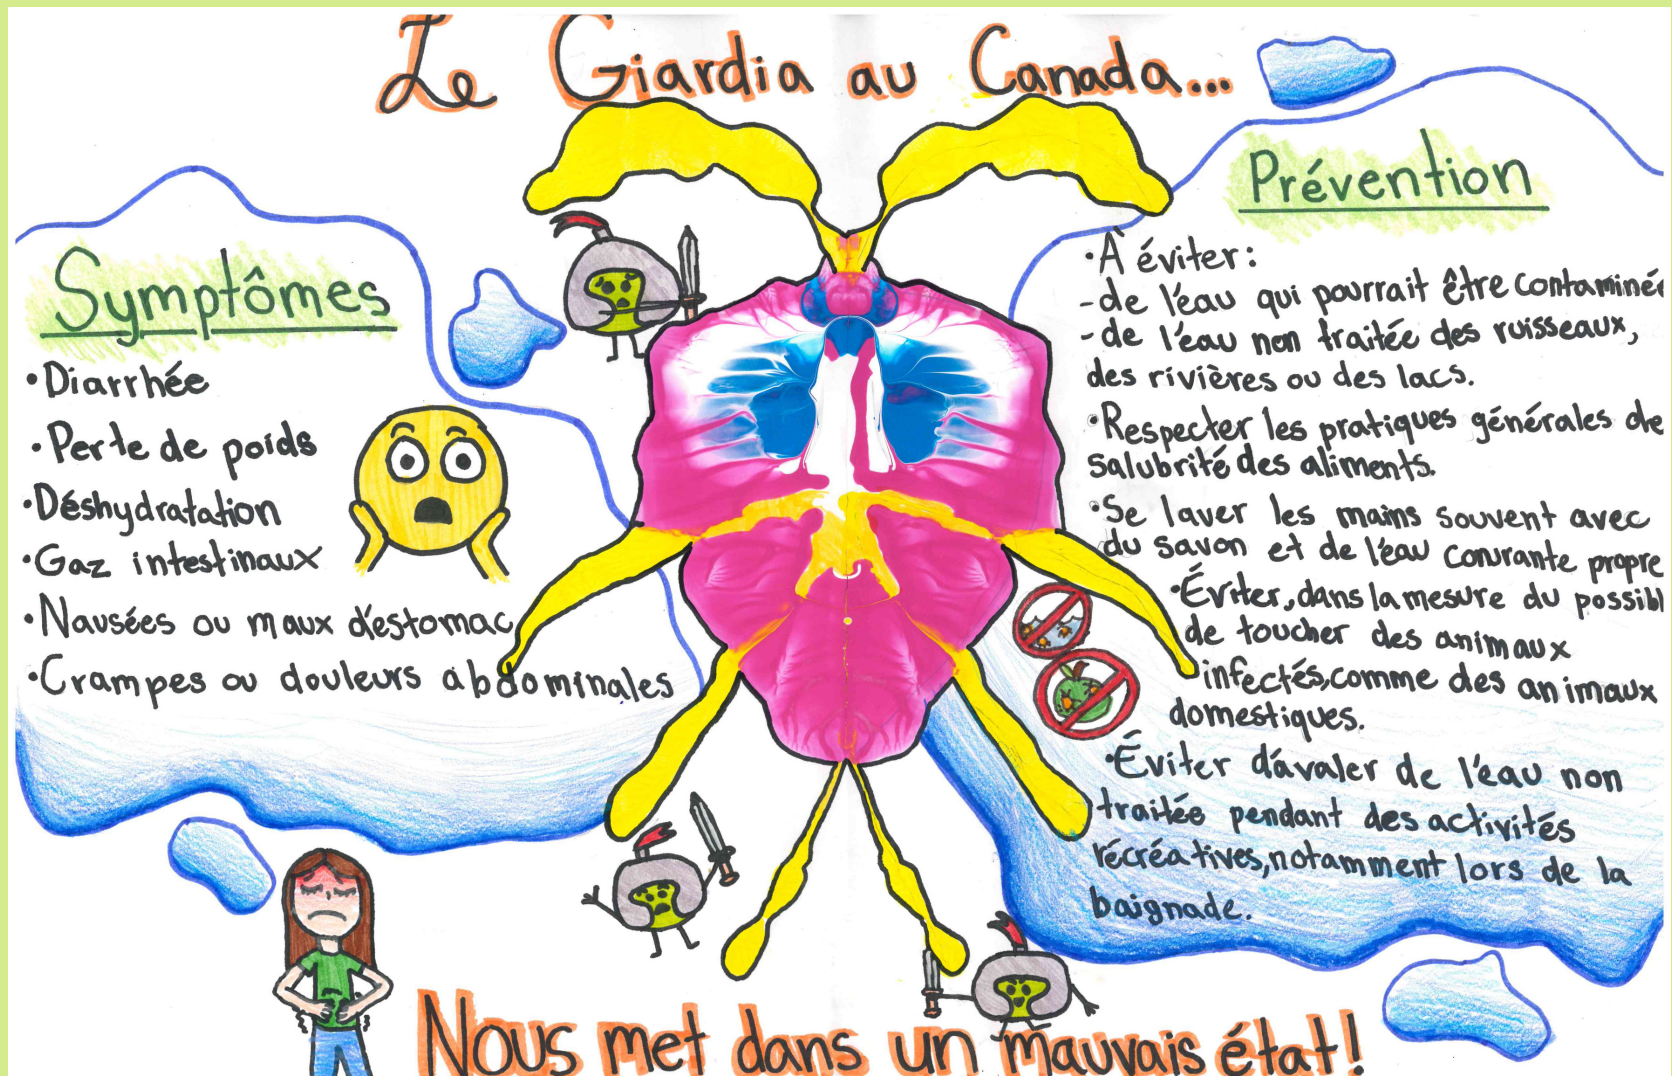 Le Giardia au Canada...
Symptômes
•Diarrhée
•Perte de poids
•Déshydratation
•Gaz intestinaux
•Nausées ou maux d'estomac
•Crampes ou douleurs abdominales
Prévention
•À éviter:
-de l'éau qui pourrait être contaminé
-de l'éau non traitée des ruisseaux,
des rivières ou des lacs.
•Respecter les pratiques générales de
salubrité des aliments.
•Se laver les mains souvent avec
du savon et de l'éau conurante propre
•Éviter, dans la mesure du possibl
de toucher des animaux
infectés, comme des animaux
domestiques.
•Éviter d'avaler de l'éau non
traitée pendant des activités
récréatives, notamment lors de la
baignade.
Nous met dans un mauvais état!